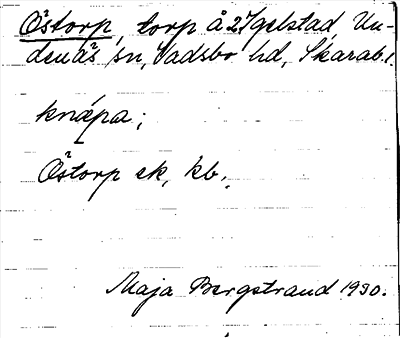 Östorp, torp å 2 Igelstad, Un-
denäs sn, Vadsbo hd, Skarab.l.
knäpa;
Östorp ek, kb.
Maja Bergstrand 1930.